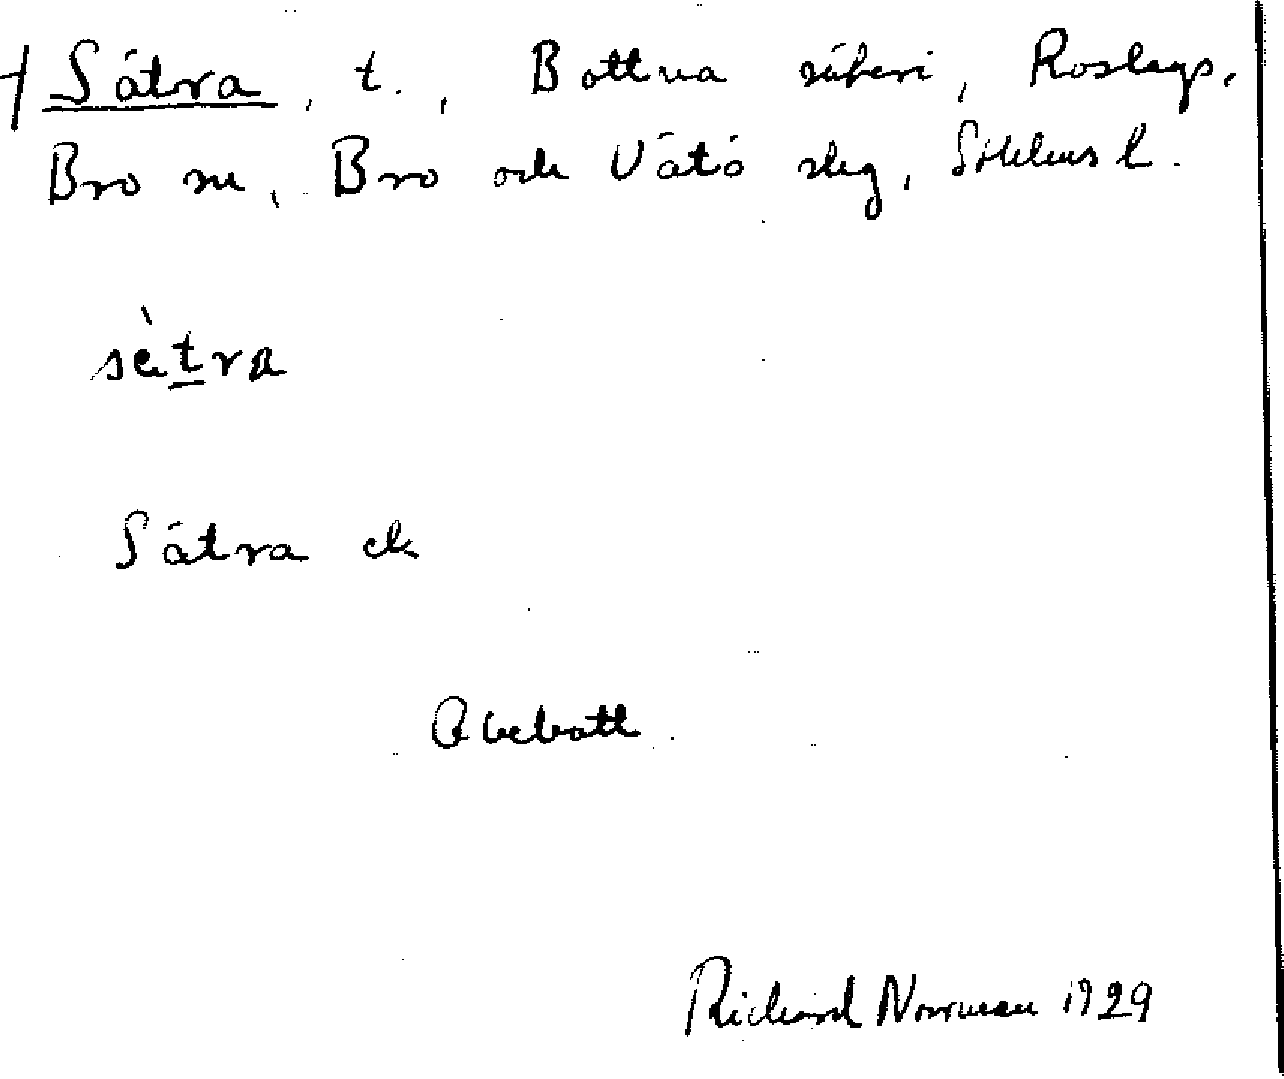 † Sätra, t., Bottna säteri, Roslags-
Bro sn, Bro och Vätö skg, Sthlms l.
sètra
Sätra ek
Obebott.
Richard Norrman 1929